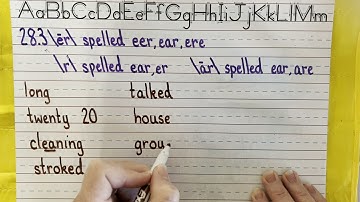 AaBbCcDdEeFfGgHhIiJjKkLlMm
28.3 \ēr\ spelled eer, ear, ere
\r\ spelled ear, er \ār\ spelled ear, are
long talked
twenty 20 house
cleaning grou
stroked